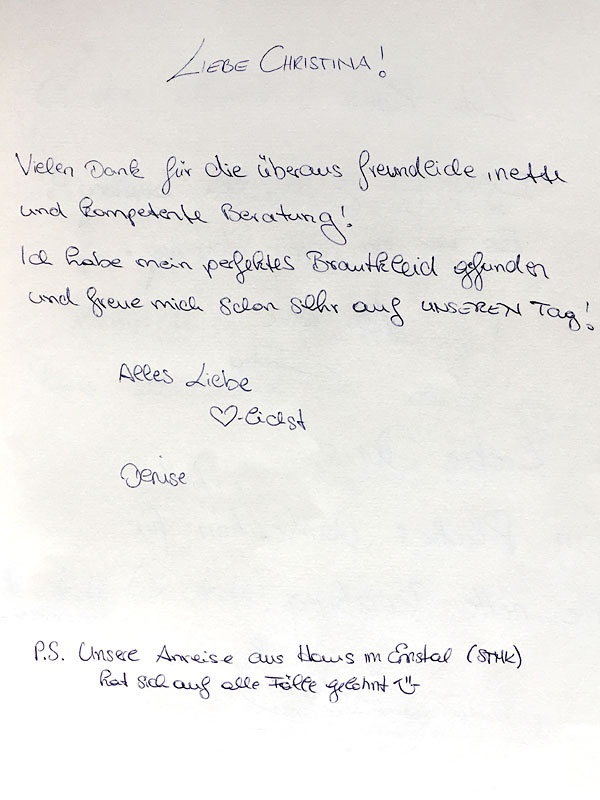 LIEBE CHRISTINA!
Vielen Dank für die überaus freundliche, nette
und kompetente Beratung!
Ich habe mein perfektes Brautkleid gefunden
und freue mich schon sehr auf UNSEREN Tag!
Alles Liebe
♡-lichst
Denise
P.S. Unsere Anreise aus Haus im Ennstal (STMK)
hat sich auf alle Fälle gelohnt ☺